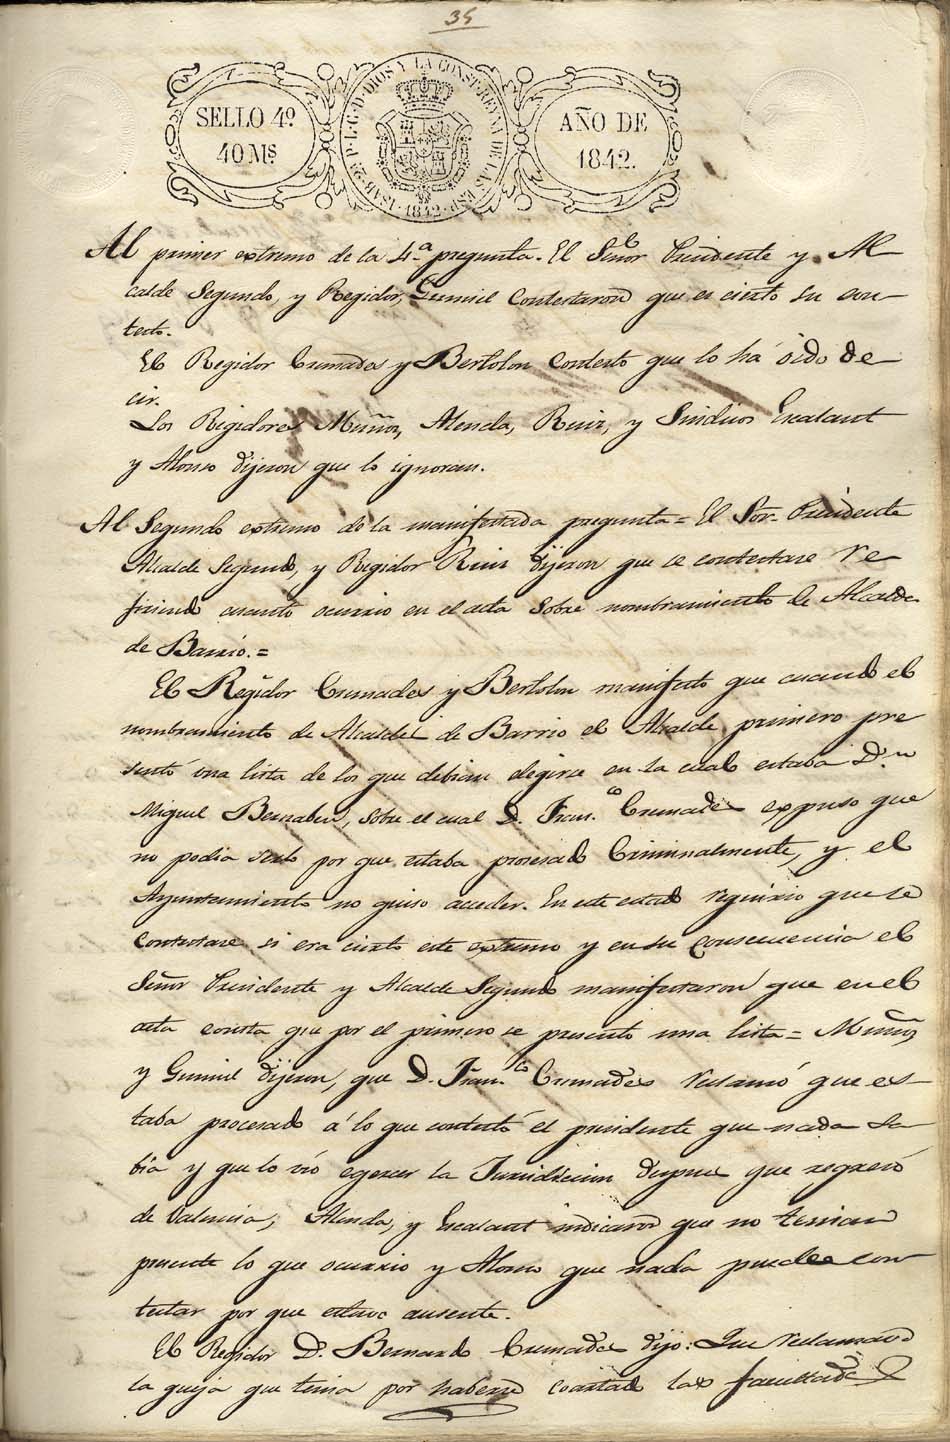 35
SELLO 4º
40 Ms
ISAB. 2ª P. L. G. D. DIOS Y LA CONST. REYNA DE LAS ESP. 1842
AÑO DE
1842.
Al primer extremo de la 4.ª pregunta. El Señor Presidente y Al
calde Segundo, y Regidor, Gumiel Contestaron que es cierto su con-
testo.
El Regidor Crumades y Bertolon Contesto que lo ha oido de
cir.
Los Regidores Muñoz, Alenda, Ruiz, y Sindicos Escalant
y Alonso dijeron que lo ignoran.
Al Segundo extremo de la manifestada pregunta = El Sor. Presidente
Alcalde Segundo, y Regidor Ruiz dijeron que se contestase re
firiendo cuanto ocurrio en el acta sobre nombramiento de Alcaldes
de Barrio. =
El Regidor Crumades y Bertolon manifesto que cuando el
nombramiento de Alcaldes de Barrio el Alcalde primero pre
sentó una lista de los que debian elegirse en la cual estaba D.n
Miguel Bernabeu, sobre el cual D. Fran.co Crumades expuso que
no podia serlo por que estaba procesado Criminalmente, y el
Ayuntamiento no quiso acceder. En este estado requirio que se
Contestase si era cierto este extremo y en su Consecuencia el
Señor Presidente y Alcalde Segundo manifestaron que en el
acta consta que por el primero se presento una lista = Muñoz
y Gumiel dijeron, que D. Fran.co Crumades reclamó que es-
taba procesado á lo que contestó el presidente que nada sa-
bia y que lo vio egercer la Jurisdiccion despues que regresó
de Valencia; Alenda, y Escalant indicaron que no tenian
presente lo que ocurrio y Alonso que nada puede con-
testar por que estuvo ausente.
El Regidor D. Bernardo Crumades dijo: Que reclamando
la queja que tenia por haberse coartado las facultades